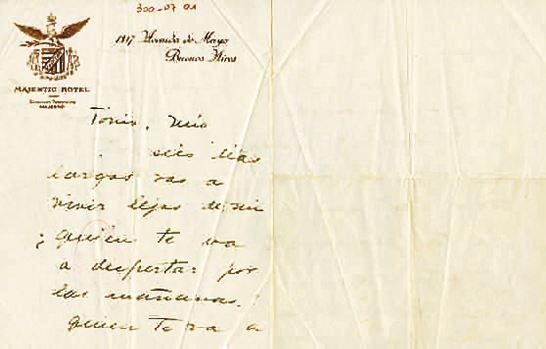 300-07 01
1317 Avenida de Mayo
Buenos Aires
MAJESTIC HOTEL
MAJESTIC
Tonio, mio
seis días
largos vas a
vivir lejos de mi
¿quien te va
a despertar por
las mañanas?
quien te va a